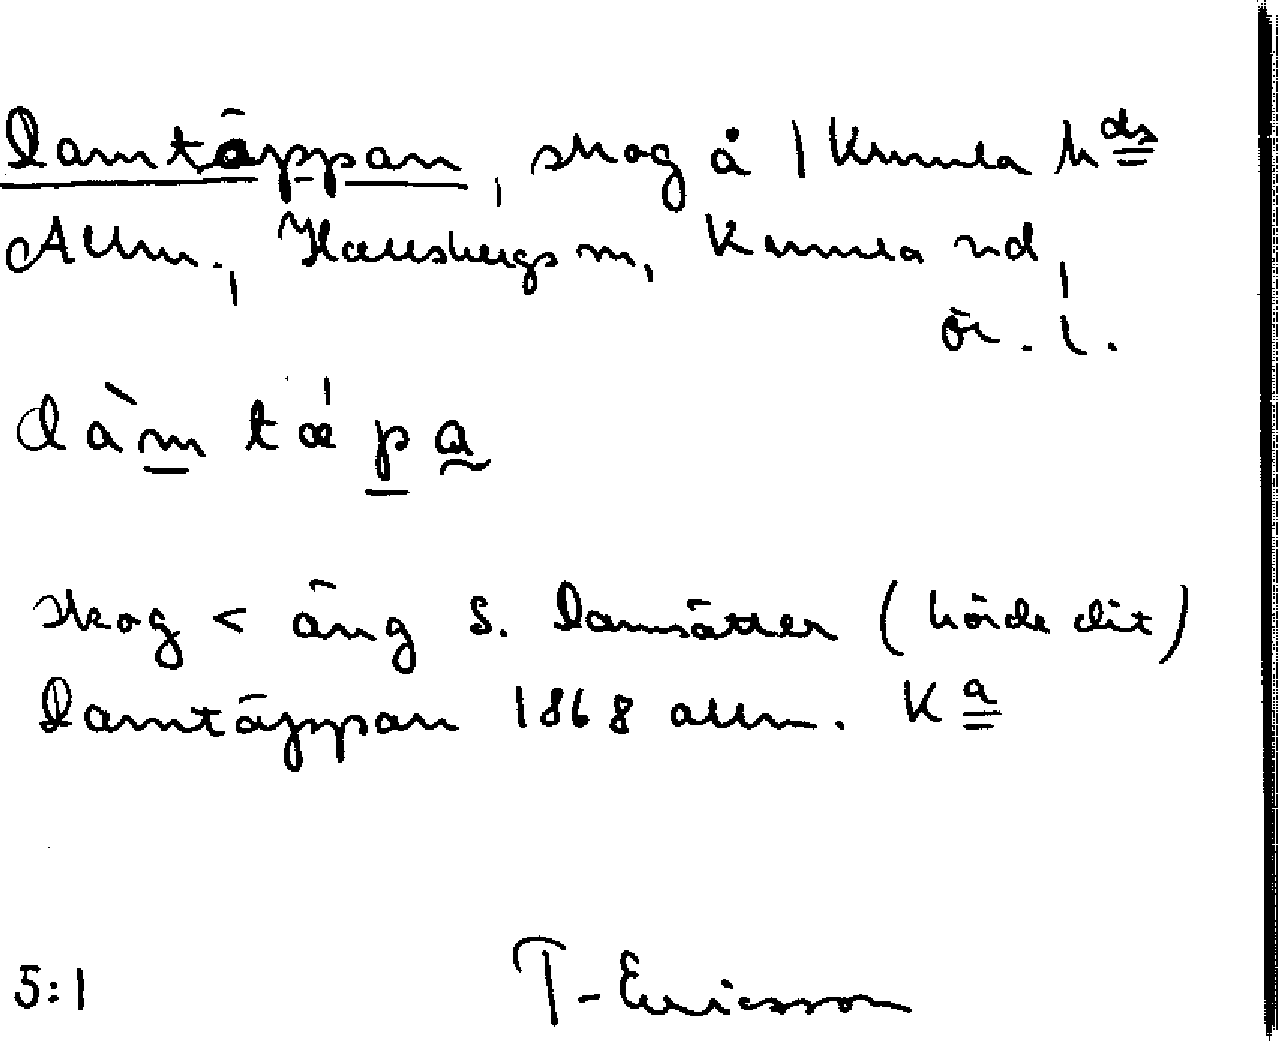 Damtäppan, skog å 1 Kumla hds
Allm., Hallsbergs m, Kumla nd,
ör. l.
dàm tǽ p a
skog < äng S. Damsätter (hörde dit)
Damtäppan 1868 allm. Ka
5:1 T-Ericsson